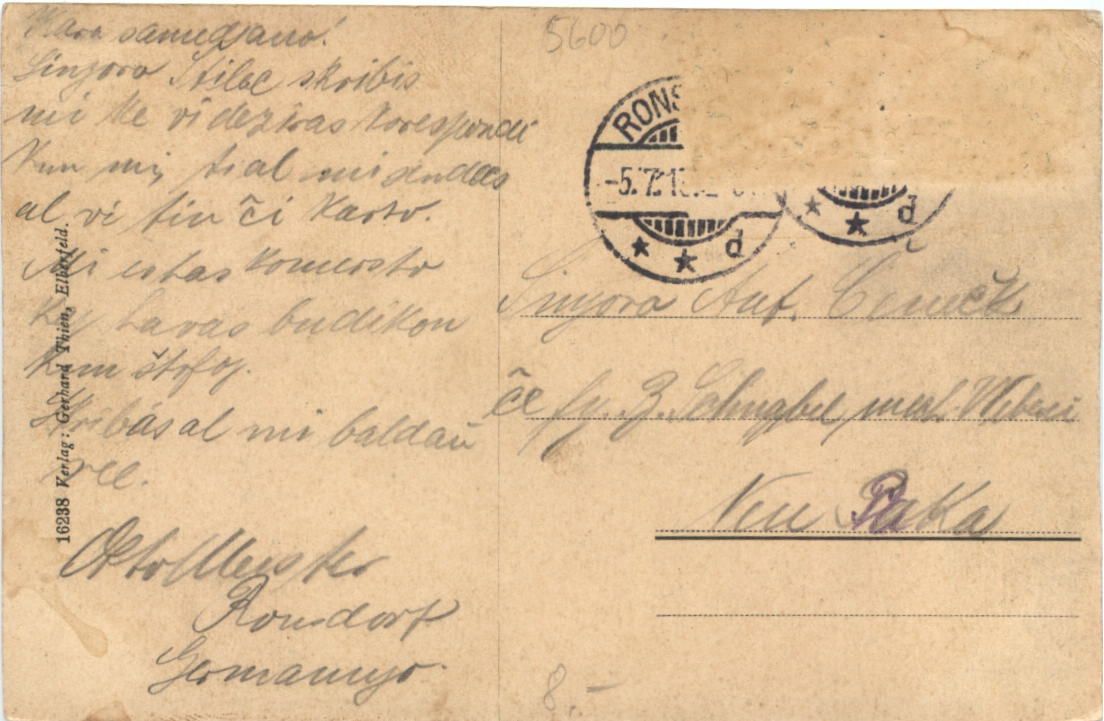 Kara samideano!
Sinjoro Stilec skribis
mi ke vi deziras korespondi
kun mi, tial mi sendas
al vi tiu či karto.
Mi estas komersto
kaj havas budikon
kun štofoj.
Skribas al mi baldaŭ
Otto Meister
Ronsdorf
Germanujo.
16238 Verlag: Gerhard Thien, Elberfeld.
5600
RONS
-5.7.1
* * d
* * d
Sinjoro Ant.
če
Neu Paka
8.-